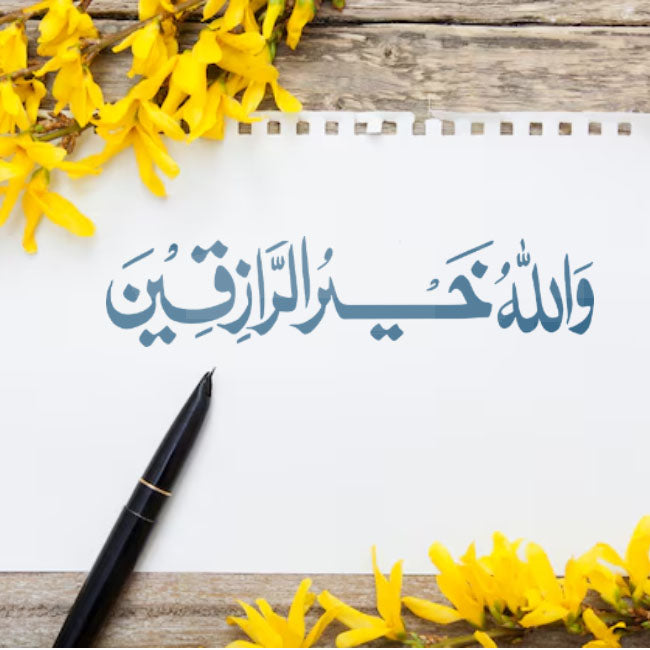 وَاللهُ خَيرُ الرَّازِقِينَ